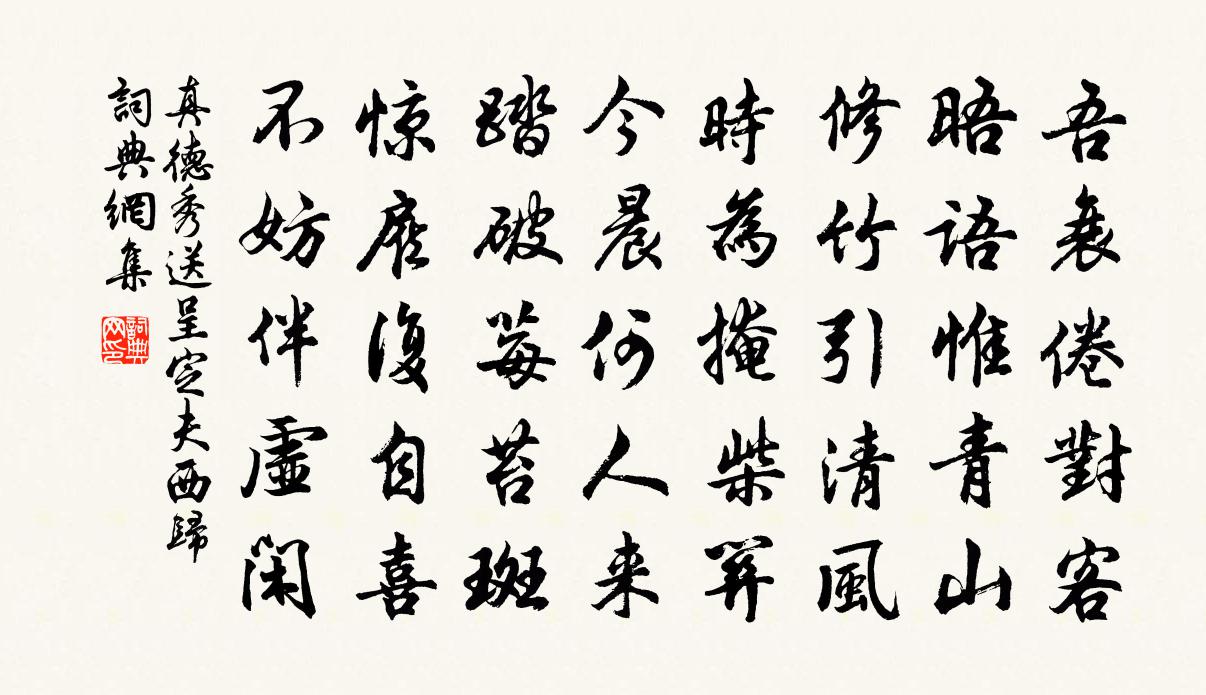 吾衰倦對客
晤語惟青山
修竹引清風
時為掩柴關
今晨何人来
踏破莓苔斑
惊定復自喜
不妨伴虛闲
真德秀送呈定夫西歸
詞典網集
詞典网印